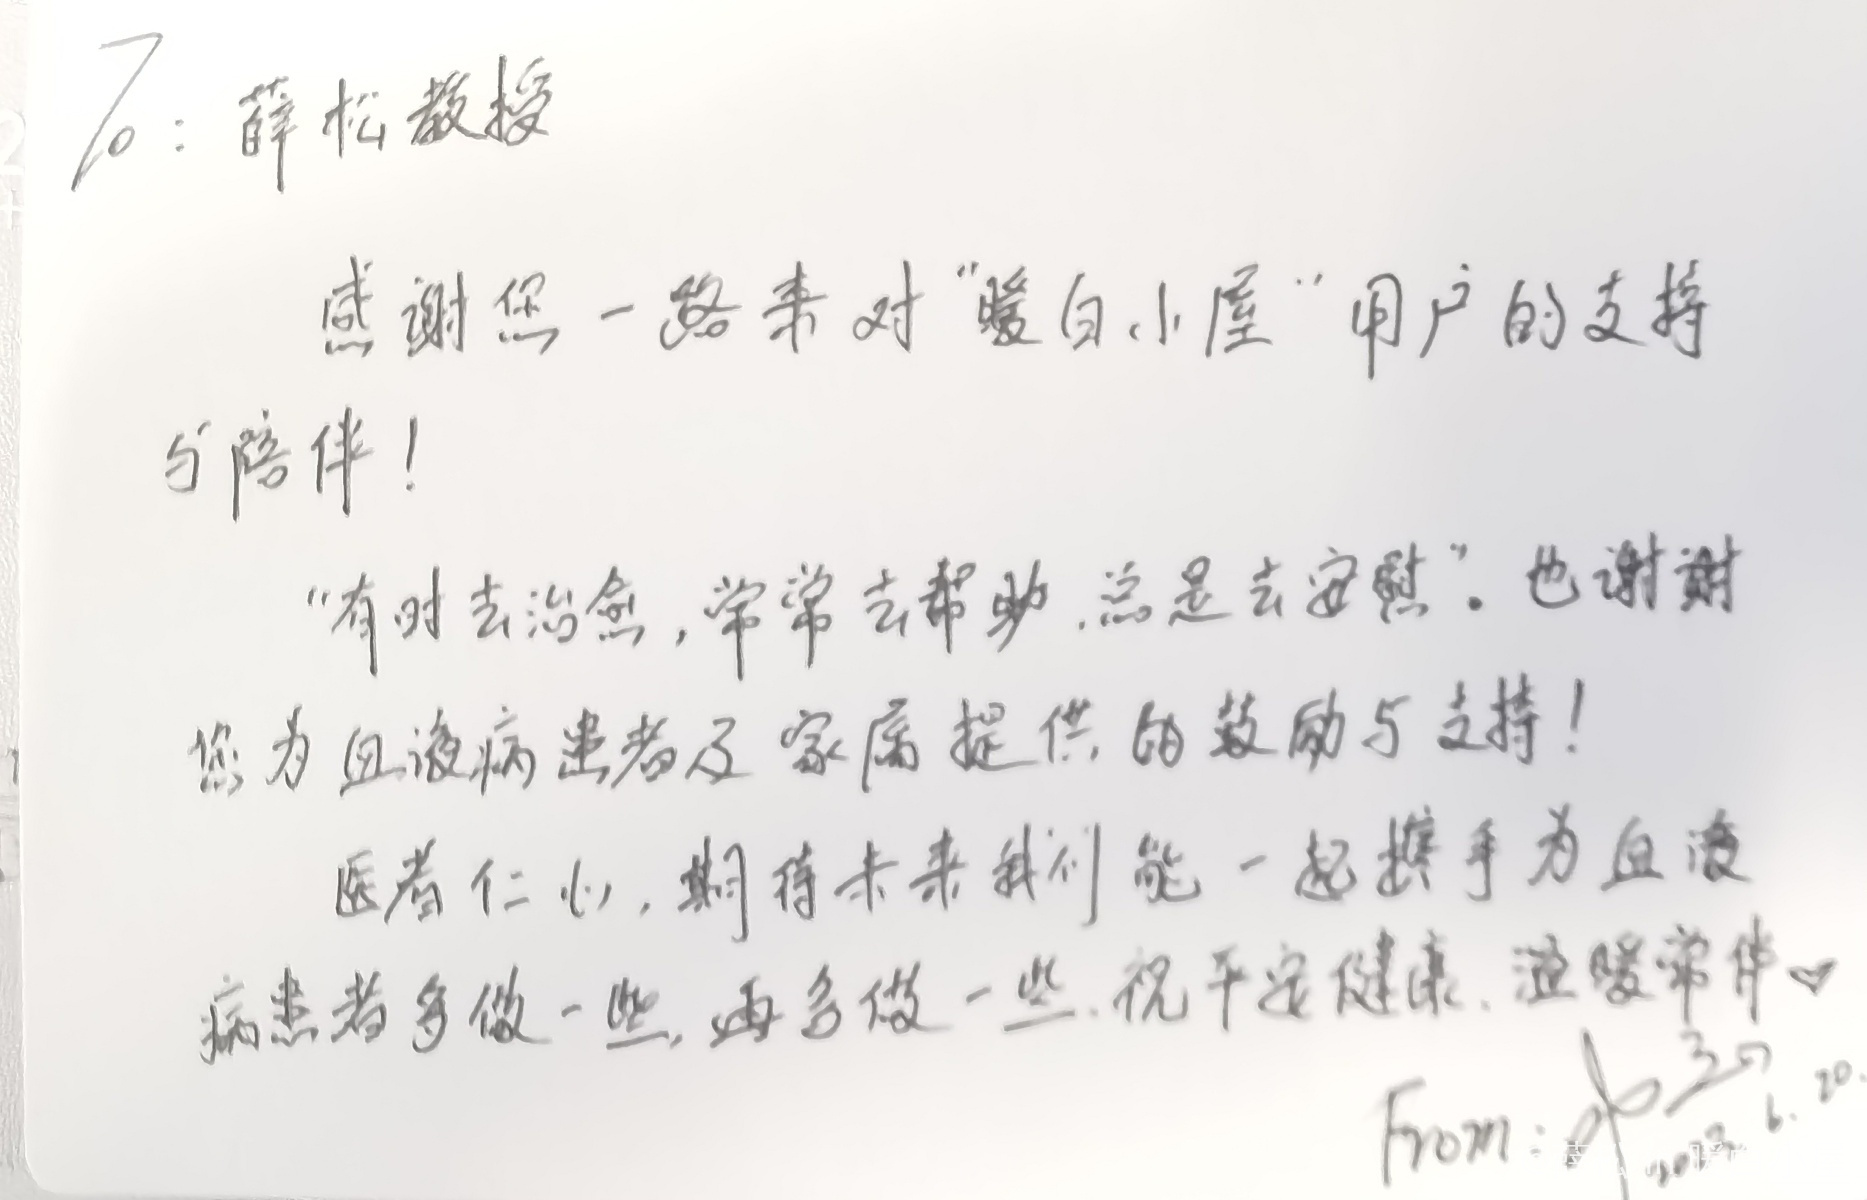 To: 薛松教授
感谢您一路来对“暖白小屋”用户的支持
与陪伴!
“有时去治愈,常常去帮助,总是去安慰”。也谢谢
您为血液病患者及家属提供的鼓励与支持!
医者仁心,期待未来我们能一起携手为血液
病患者多做一些,再多做一些.祝平安健康.温暖常伴♡
From:
6.20.